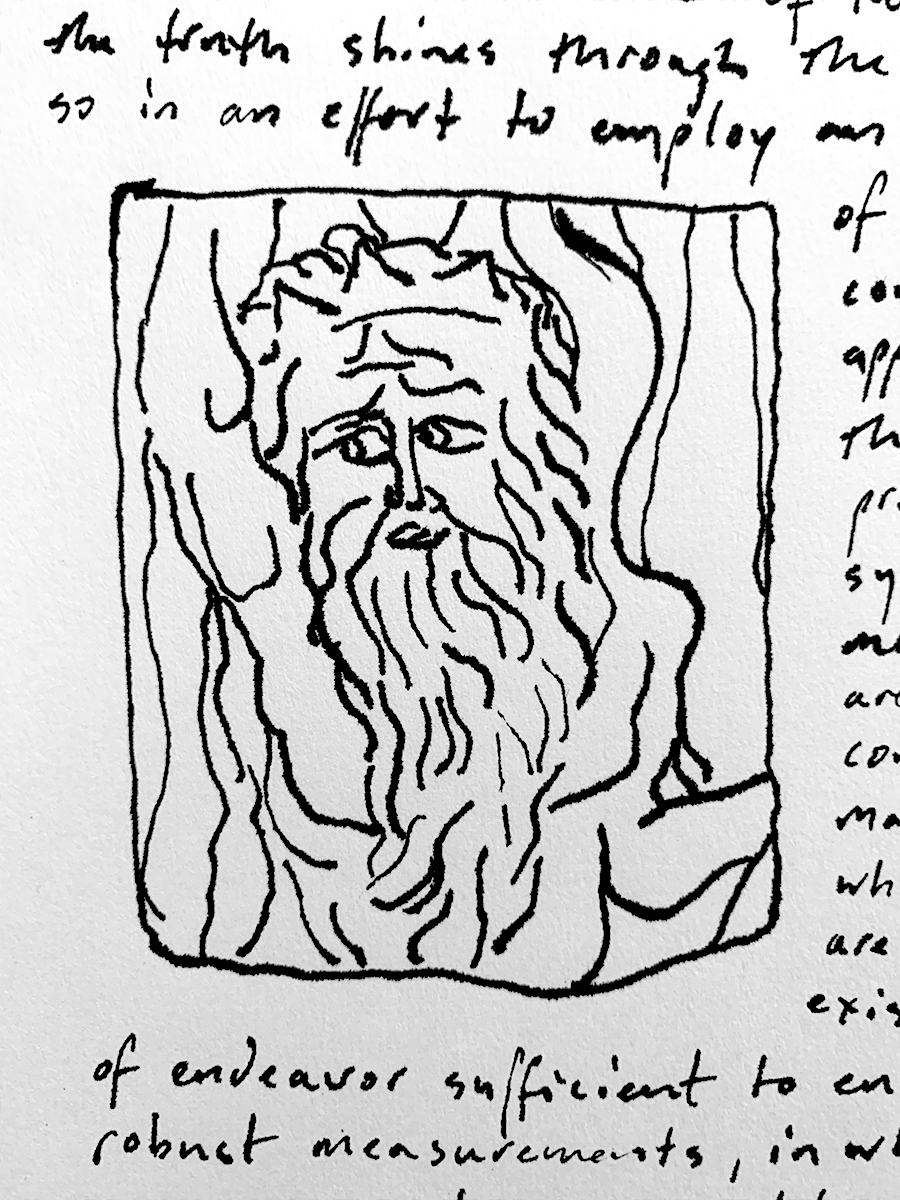 of
the truth shines through the
so in an effort to employ our
of
co
app
th
pr
sy
me
are
con
ma
wh
are
exis
of endeavor sufficient to en
robust measurements, in wh